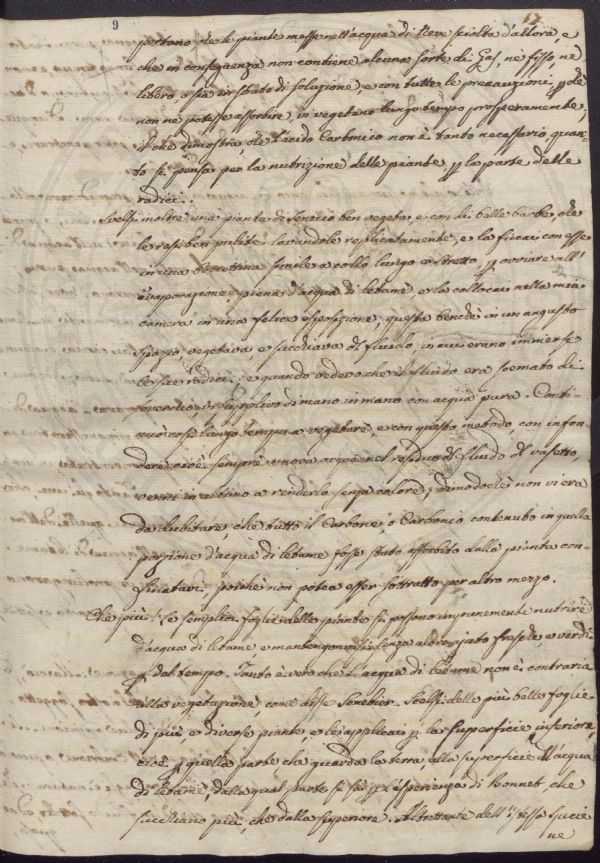 9 17
portano che le piante messe nell'acqua di Neve sciolta d'allora, e
che in conseguenza non contiene alcuna sorte di Gas, nè fisso, nè
libero, o sia in stato di soluzione, e con tutte le precauzioni, che
non ne potesse assorbire, vi vegetano lungo tempo prosperamente,
il che dimostra, che l'acido Carbonico non è tanto necessario quan-
to si pensa per la nutrizione delle piante la parte delle
radici.
Scelsi inoltre una pianta di Senecio ben vegeta, e con di belle barbe, che
le resi ben pulite lavandole replicatamente, e la ficcai con esse
in una simile a collo lungo e stretto, ovviare all'
evaporazione, piena d'acqua di letame, e la collocai nella mia
camera in una felice esposizione, questa benchè in un angusto
spazio vegetava e succhiava il fluido in cui erano immerse
le sue radici, e quando vedevo che il fluido era scemato di
di mano in mano con acqua pura. Conti-
nuò così lungo tempo a vegetare, e con questo metodo, con infon-
dere cioè sempre nuova acqua nel residuo fluido vasetto,
venni in ultimo a renderla senza colore, dimodochè non vi era
da dubitare, che tutto il Carbone, o Carbonio contenuto in quella
porzione d'acqua di letame fosse stato assorbito dalla pianta con-
poichè non potea esser sottratto per altro mezzo.
Che più! Le semplici foglie delle piante si possono impunemente nutrire
d'acqua di letame, e mantengonsi fresche, e verdi
del tempo. Tanto è vero che l'acqua di letame non è contraria
alla vegetazione, come disse Senebier. Scelsi delle più belle foglie
di più, e diverse piante, e le applicai la superficie inferiore,
cioè quella parte che guarda la terra, alla superficie dell'acqua
di letame, dalla qual parte si sa l'esperienza di Bonnet, che
succhiano più, che dalla superiore. Altrettante dell'istessa specie
ne